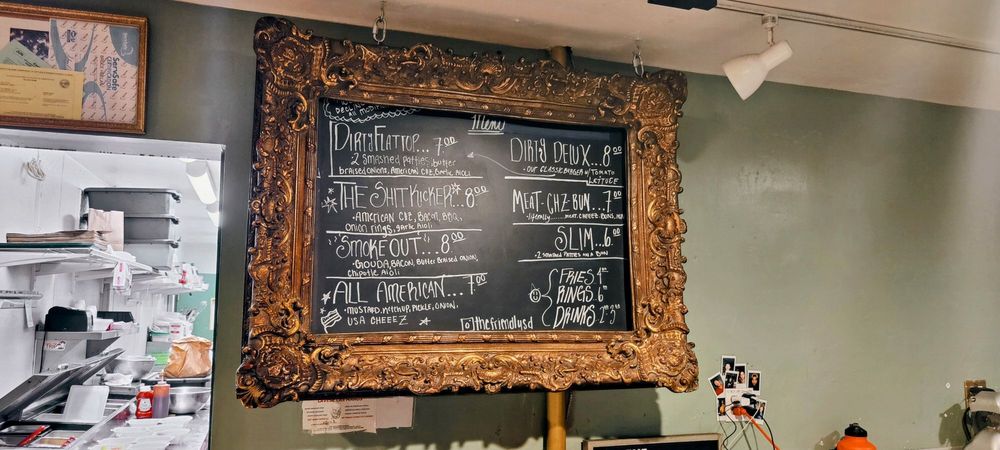 all modif
Menu
DIRTY FLATTOP... 7.00
2 smashed patties, butter
braised onions, American CHZ, Garlic Aioli
THE SHITKICKER 8.00
• American CHZ, Bacon, BBQ,
onion rings, garlic Aioli
"SMOKE OUT"... 8.00
• GOUDA, BACON, Butter Braised ONION,
Chipotle Aioli
ALL AMERICAN... 7.00
• MUSTARD, KETCHUP, PICKLE, ONION,
USA CHEEEZ
DIRTY DELUX...8.00
• OUR CLASSIC BURGER W/ TOMATO
LETTUCE
MEAT-CHZ-BUN...7.00
• literally.......MEAT. CHEEEZ. BUNS.
SLIM...6.00
• 2 smashed PATTIES ON A BUN
FRIES 4
RINGS 6
DRINKS 2 3
thefriendlysd
ServSafe